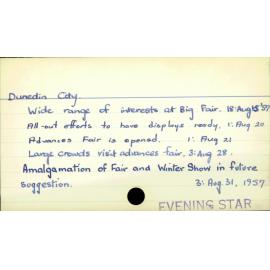 Dunedin City
Wide range of interests at Big Fair. 18: Aug 15 '57
All-out efforts to have displays ready. 1: Aug 20
Advances Fair is opened. 1: Aug 21
Large crowds visit advances fair. 3: Aug 28.
Amalgamation of Fair and Winter Show in future
suggestion. 3: Aug. 31, 1957
EVENING STAR